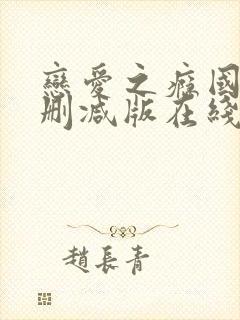 戀愛之癮國
刪減版在綫
趙長青